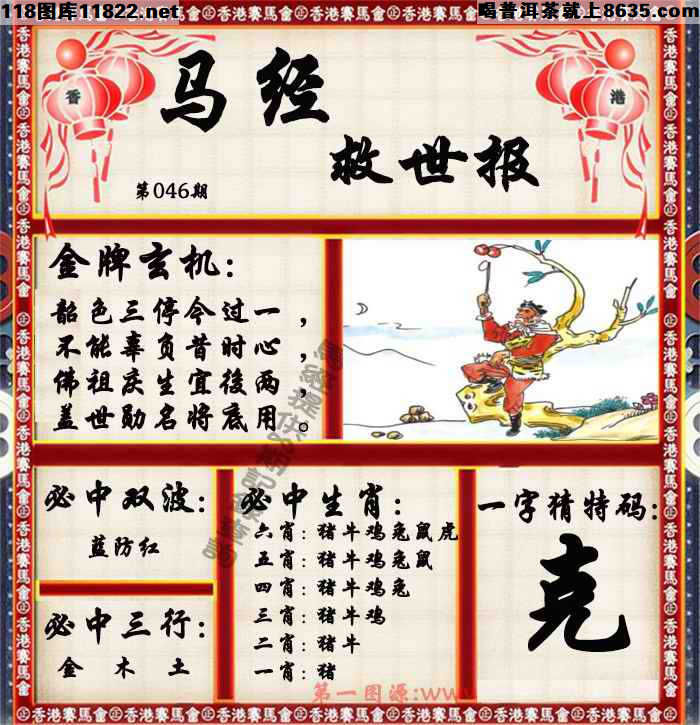 118图库11822.net
喝普洱茶就上8635.com
香
港
马经
救世报
第046期
金牌玄机:
韶色三停今过一，
不能辜负昔时心，
佛祖庆生宜後两，
盖世勋名将底用。
必中双波:
蓝防红
必中三行:
金 木 土
必中生肖:
六肖: 猪牛鸡兔鼠虎
五肖: 猪牛鸡兔鼠
四肖: 猪牛鸡兔
三肖: 猪牛鸡
二肖: 猪牛
一肖: 猪
一字猜特码:
克
第一图源:www
香港賽馬會